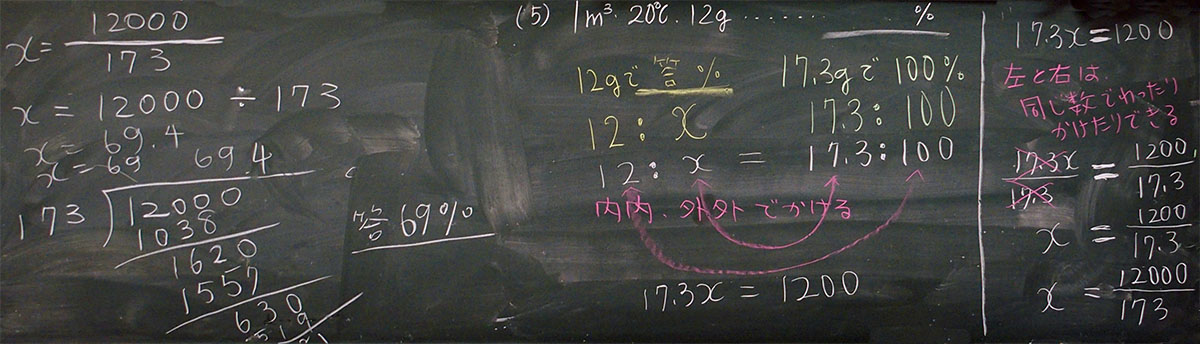 x = 12000/173
x = 12000 ÷ 173
x = 69.4
x = 69
69.4
173)12000
1038
1620
1557
630
519
答 69%
(5) 1m³・20℃・12g ……… %
12gで 答 %
12 : x
17.3gで 100%
17.3 : 100
12 : x = 17.3 : 100
内内、外外でかける
17.3x = 1200
17.3x = 1200
左と右は、
同じ数でわったり
かけたりできる
17.3x/17.3 = 1200/17.3
x = 1200/17.3
x = 12000/173